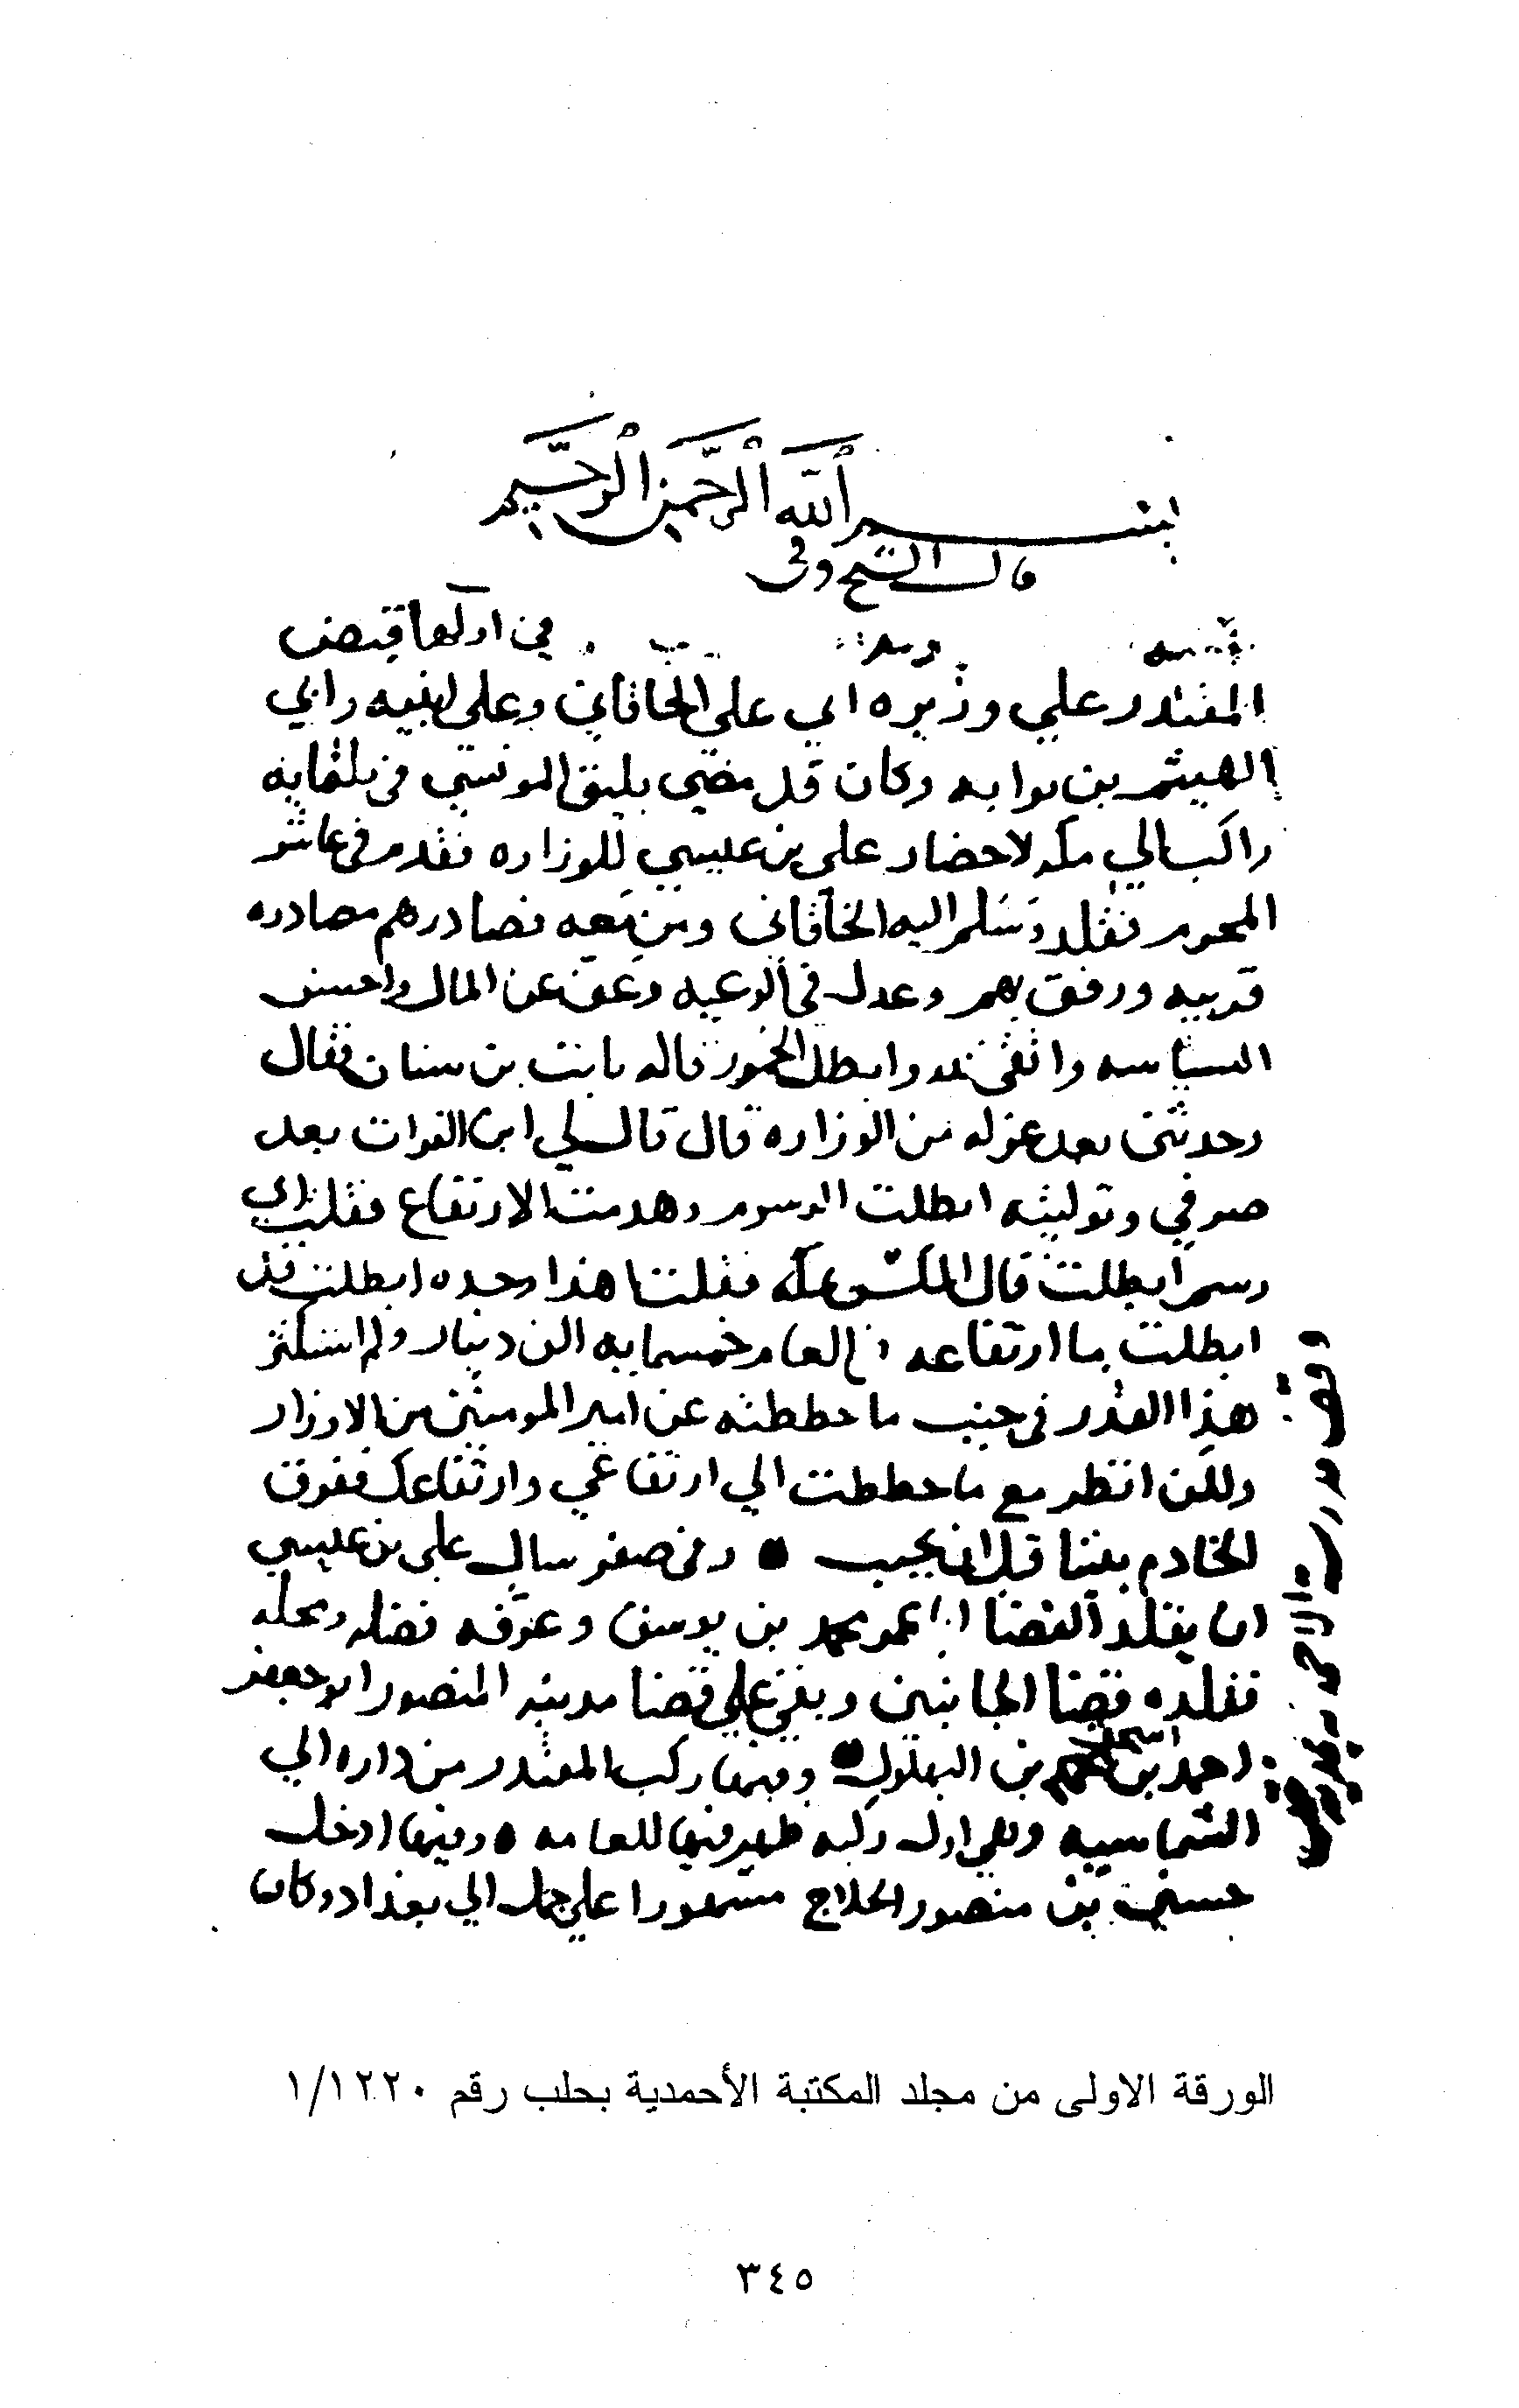 بسم الله الرحمن الرحيم
قال الشيخ وفى
في اولها قبض
المقتدر علي وزيره ابي علي الخاقاني وعلي ابنيه وابي
الهيثم بن ثوابه وكان قد مضي بليق المونسي في ثلثمايه
راكب الي مكه لاحضار علي بن عيسي للوزاره فقدم في عاشر
المحرم فقلد وسلم اليه الخاقاني ومن معه فصادرهم مصادره
قريبه ورفق بهم وعدل في الرعيه وعف عن المال واحسن
السياسه واتقى الله وابطل الخمور قاله ثابت بن سنان فقال
وحدثني بعد عزله من الوزاره قال قال لي ابن الفرات بعد
صرفي وتوليته ابطلت الرسوم وهدمت الارتفاع فقلت اي
رسم ابطلت قال المكس بمكه فقلت هذا وحده ابطلت قد
ابطلت ما ارتفاعه في العام خمسمايه الف دينار ولم استكثر
هذا القدر في جنب ما حططته عن امير المومنين من الاوزار
ولكن انظر مع ما حططت الي ارتفاعي وارتفاعك ففرق
الخادم بيننا قبل ان يجيب ٥ وفي صفر سال علي بن عيسي
ان يقلد القضا ابا عمر محمد بن يوسف وعرفه فضله ومحله
فقلده قضا الجانبين وبقي علي قضا مدينه المنصور ابو جعفر
احمد بن اسحق بن البهلول ٥ وفيها ركب المقتدر من داره الي
الشماسيه وهي اول ركبه ظهر فيها للعامه ٥ وفيها ادخل
حسين بن منصور الحلاج مشهورا علي جمل الي بغداد وكان
وقف مدرسة الاحمدية
الورقة الاولى من مجلد المكتبة الأحمدية بحلب رقم ١/١٢٢٠
٣٤٥